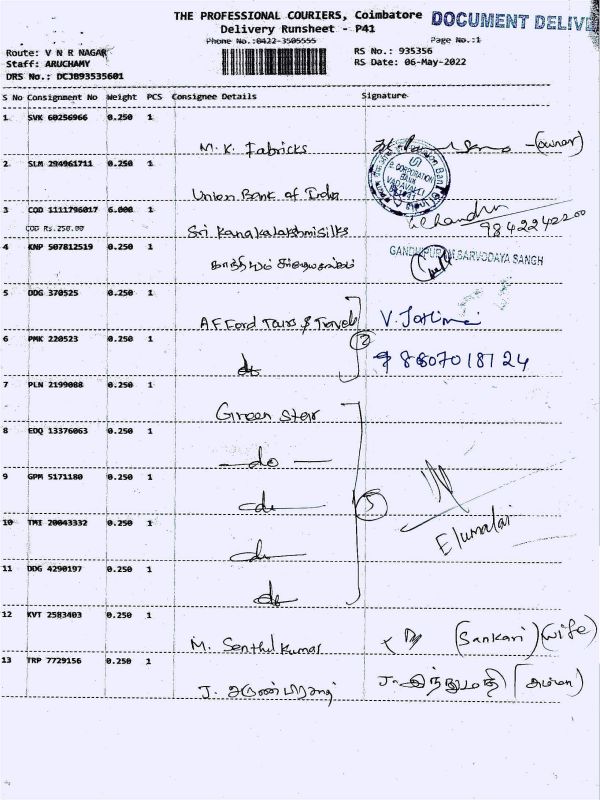 THE PROFESSIONAL COURIERS, Coimbatore
DOCUMENT DELIVE
Delivery Runsheet - P41
Phone No.:0422-3505555
Page No.:1
Route: V N R NAGAR
Staff: ARUCHAMY
DRS No.: DCJB93535601
RS No.: 935356
RS Date: 06-May-2022
S No Consignment No Weight PCS Consignee Details Signature
1 SVK 60256966 0.250 1
M.K. Fabricks -(owner)
2 SLM 294961711 0.250 1
Union Bank of India
3 COD 1111796017 6.000 1
COD Rs.250.00
Sri Kanakalakshmisilks
9842242200
4 KNP 507812519 0.250 1
GANDHIPURAM SARVODAYA SANGH
5 DDG 370525 0.250 1
AFFord Taxis & Travels V.Jothimai
6 PMK 220523 0.250 1
do 2 9 8807018124
7 PLN 2199088 0.250 1
Green Star
8 EDQ 13376063 0.250 1
do
9 GPM 5171180 0.250 1
do 5
Elumalai
10 TMI 20043332 0.250 1
do
11 DDG 4290197 0.250 1
do
12 KVT 2583403 0.250 1
M. Senthilkumar (Sankari) (wife)
13 TRP 7729156 0.250 1
J. அருண்பிரசாத் J. இந்துமதி (அம்மா)